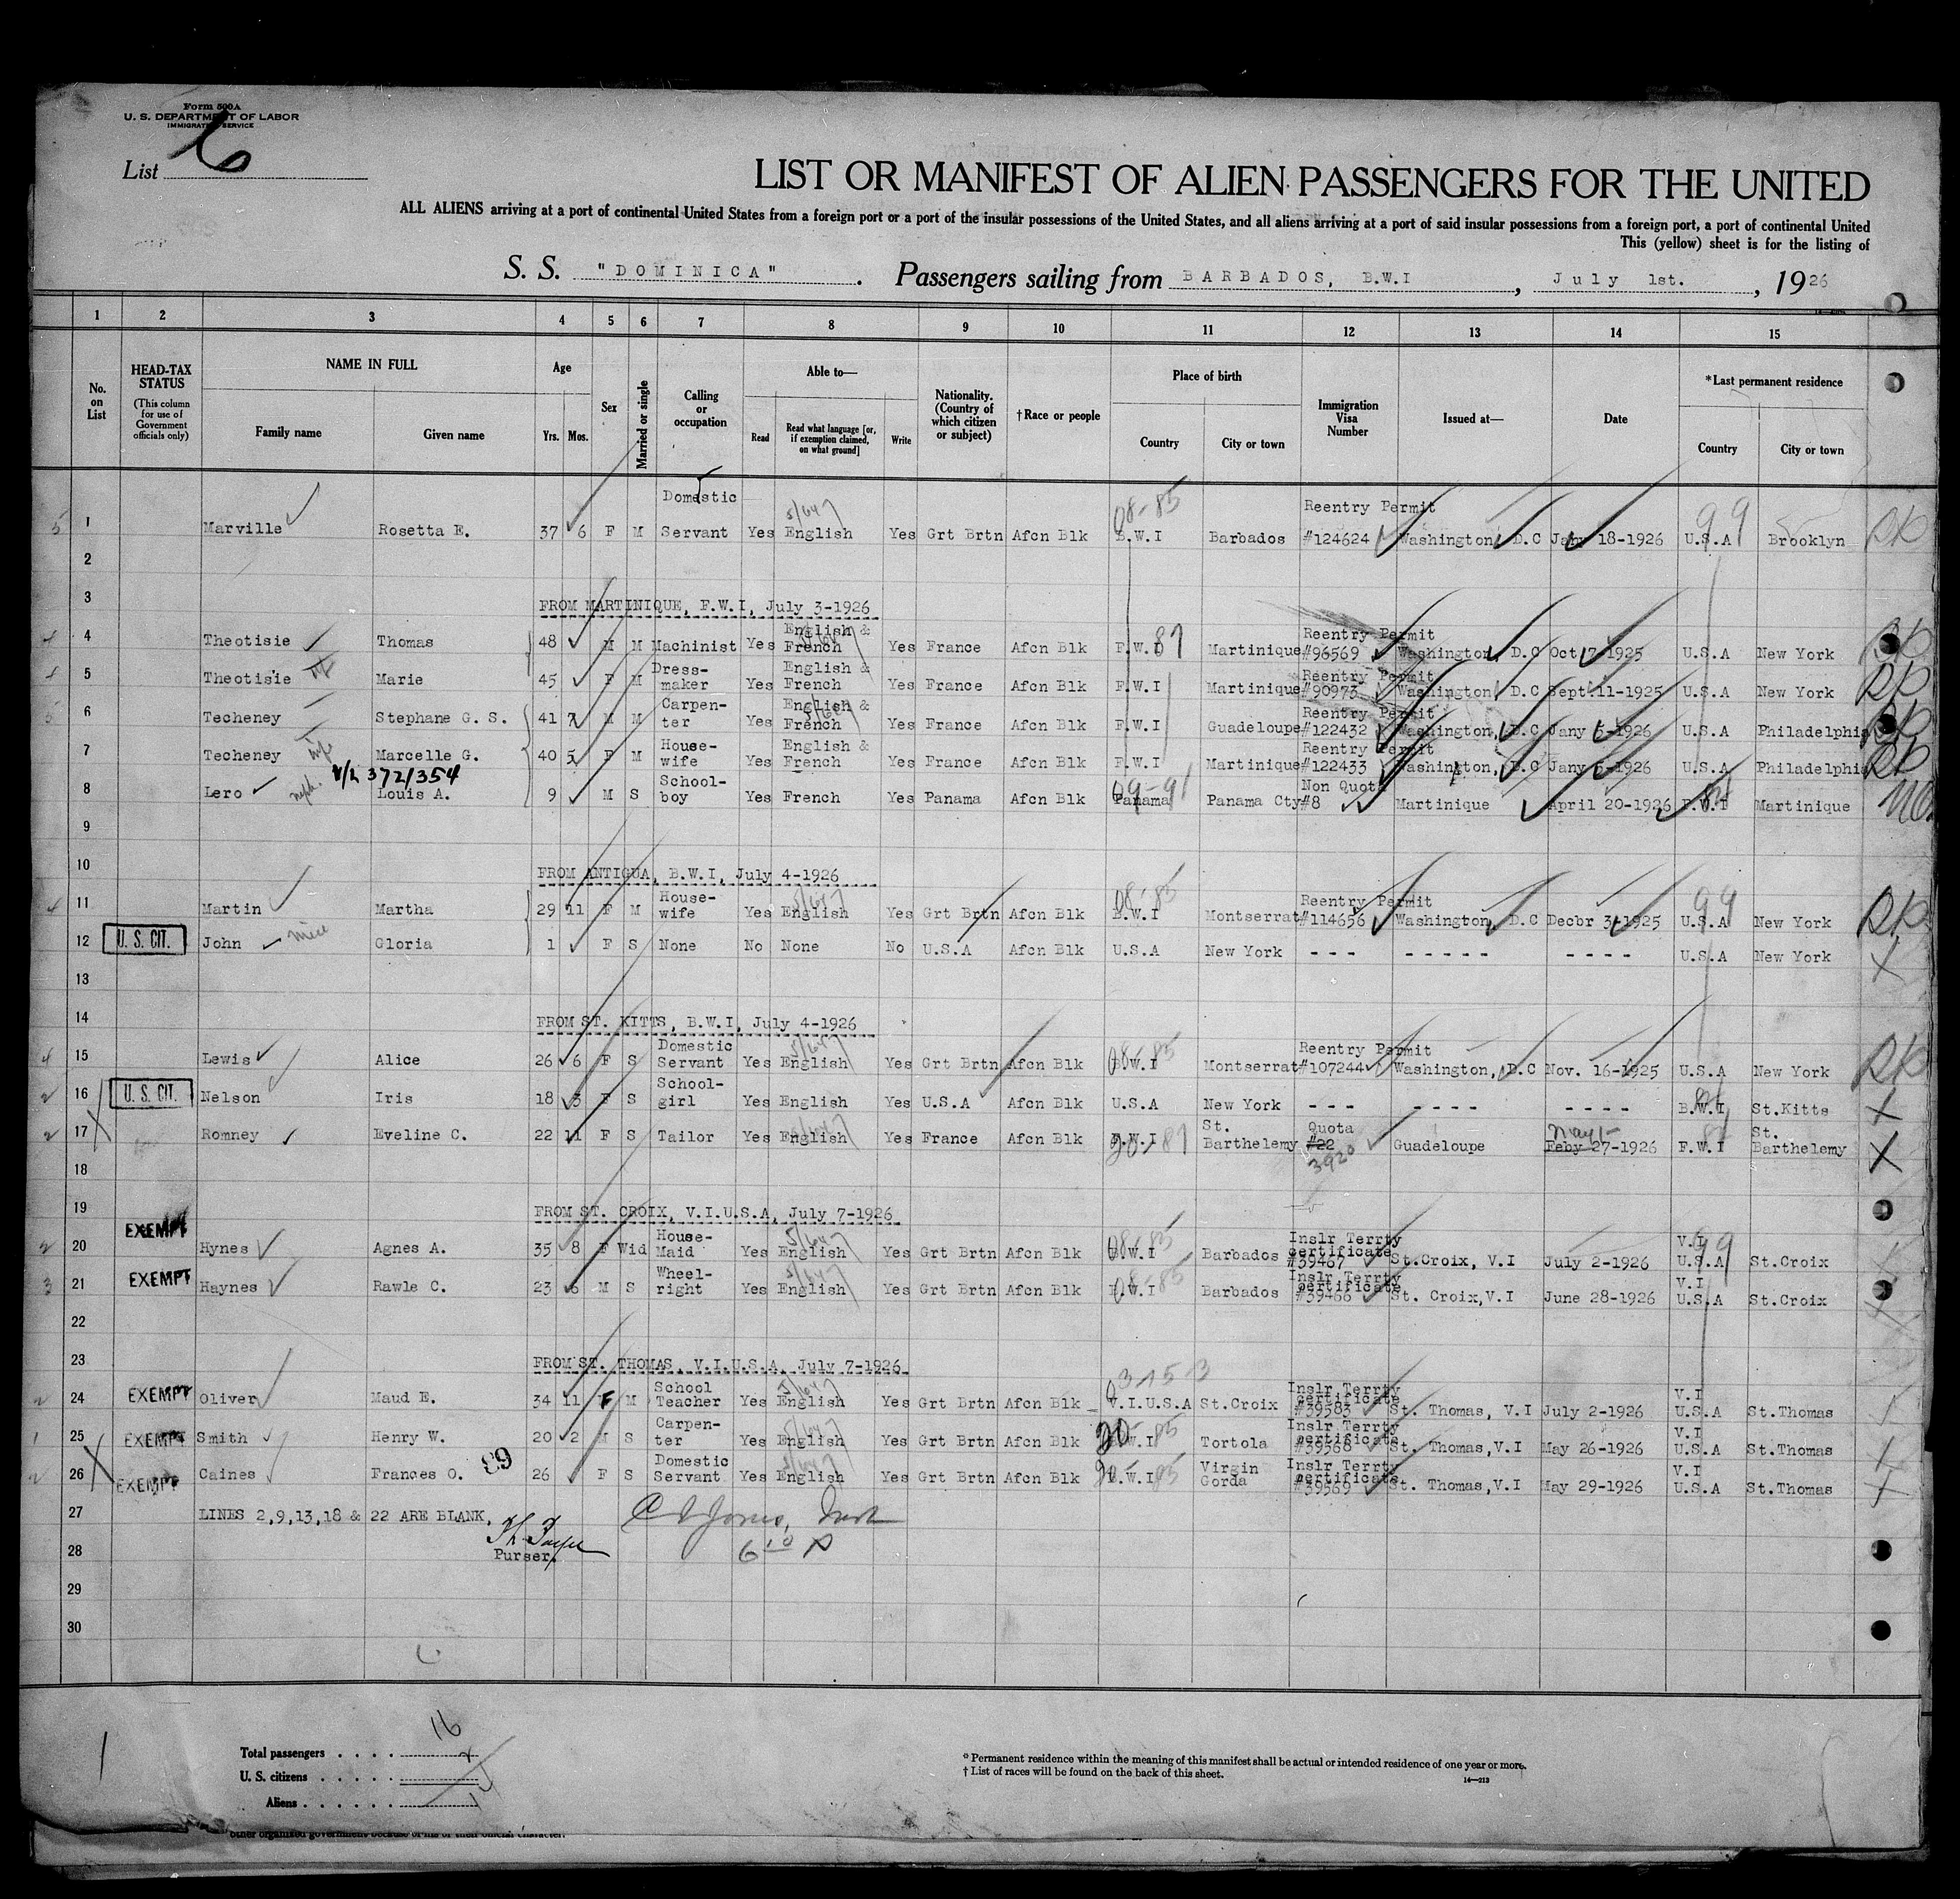 Form 500A
U. S. DEPARTMENT OF LABOR
IMMIGRATION SERVICE
List 6
LIST OR MANIFEST OF ALIEN PASSENGERS FOR THE UNITED
ALL ALIENS arriving at a port of continental United States from a foreign port or a port of the insular possessions of the United States, and all aliens arriving at a port of said insular possessions from a foreign port, a port of continental United
This (yellow) sheet is for the listing of
S. S. "DOMINICA". Passengers sailing from BARBADOS, B.W.I, July 1st., 1926
1 2 3 4 5 6 7 8 9 10 11 12 13 14 15
No. on List
HEAD-TAX STATUS (This column for use of Government officials only)
NAME IN FULL
Family name Given name
Age
Yrs. Mos.
Sex
Married or single
Calling or occupation
Able to—
Read Read what language [or, if exemption claimed, on what ground] Write
Nationality. (Country of which citizen or subject)
†Race or people
Place of birth
Country City or town
Immigration Visa Number
Issued at—
Date
*Last permanent residence
Country City or town
1 Marville Rosetta E. 37 6 F M Domestic Servant Yes English Yes Grt Brtn Afcn Blk B.W.I Barbados Reentry Permit #124624 Washington, D.C Jany 18-1926 U.S.A Brooklyn
2
3 FROM MARTINIQUE, F.W.I, July 3-1926
4 Theotisie Thomas 48 M M Machinist Yes English & French Yes France Afcn Blk F.W.I Martinique Reentry Permit #96569 Washington, D.C Oct 7-1925 U.S.A New York
5 Theotisie Marie 45 F M Dress-maker Yes English & French Yes France Afcn Blk F.W.I Martinique Reentry Permit #90973 Washington, D.C Sept 11-1925 U.S.A New York
6 Techeney Stephane G. S. 41 7 M M Carpen-ter Yes English & French Yes France Afcn Blk F.W.I Guadeloupe Reentry Permit #122432 Washington, D.C Jany 6-1926 U.S.A Philadelphia
7 Techeney wife Marcelle G. 40 5 F M House-wife Yes English & French Yes France Afcn Blk F.W.I Martinique Reentry Permit #122433 Washington, D.C Jany 6-1926 U.S.A Philadelphia
V/L 372/354
8 Lero neph. Louis A. 9 M S School-boy Yes French Yes Panama Afcn Blk Panama Panama Cty Non Quota #8 Martinique April 20-1926 F.W.I Martinique
9
10 FROM ANTIGUA, B.W.I, July 4-1926
11 Martin Martha 29 11 F M House-wife Yes English Yes Grt Brtn Afcn Blk B.W.I Montserrat Reentry Permit #114656 Washington, D.C Decbr 3-1925 U.S.A New York
12 U. S. CIT. John niece Gloria 1 F S None No None No U.S.A Afcn Blk U.S.A New York - - - - - - - - - - - - U.S.A New York
13
14 FROM ST. KITTS, B.W.I, July 4-1926
15 Lewis Alice 26 6 F S Domestic Servant Yes English Yes Grt Brtn Afcn Blk B.W.I Montserrat Reentry Permit #107244 Washington, D.C Nov. 16-1925 U.S.A New York
16 U. S. CIT. Nelson Iris 18 3 F S School-girl Yes English Yes U.S.A Afcn Blk U.S.A New York - - - - - - - - - - - B.W.I St.Kitts
17 Romney Eveline C. 22 11 F S Tailor Yes English Yes France Afcn Blk F.W.I St. Barthelemy Quota #22 3920 Guadeloupe May 1- Feby 27-1926 F.W.I St. Barthelemy
18
19 FROM ST. CROIX, V.I.U.S.A, July 7-1926
20 EXEMPT Hynes Agnes A. 35 8 F Wid House-Maid Yes English Yes Grt Brtn Afcn Blk B.W.I Barbados Inslr Terrty certificate #39467 St.Croix, V.I July 2-1926 V.I U.S.A St.Croix
21 EXEMPT Haynes Rawle C. 23 6 M S Wheel-right Yes English Yes Grt Brtn Afcn Blk B.W.I Barbados Inslr Terrty certificate #39466 St. Croix,V.I June 28-1926 V.I U.S.A St.Croix
22
23 FROM ST. THOMAS, V.I.U.S.A, July 7-1926
24 EXEMPT Oliver Maud E. 34 11 F M School Teacher Yes English Yes Grt Brtn Afcn Blk V.I.U.S.A St.Croix Inslr Terrty certificate #39583 St. Thomas, V.I July 2-1926 V.I U.S.A St.Thomas
25 EXEMPT Smith Henry W. 20 2 M S Carpen-ter Yes English Yes Grt Brtn Afcn Blk B.W.I Tortola Inslr Terrty certificate #39568 St. Thomas,V.I May 26-1926 V.I U.S.A St.Thomas
26 EXEMPT Caines Frances O. 26 F S Domestic Servant Yes English Yes Grt Brtn Afcn Blk B.W.I Virgin Gorda Inslr Terrty certificate #39569 St. Thomas,V.I May 29-1926 V.I U.S.A St.Thomas
27 LINES 2,9,13,18 & 22 ARE BLANK,
28 Purser.
29
30
Total passengers . . . . 16
U. S. citizens . . . . . 2
Aliens . . . . . . 14
* Permanent residence within the meaning of this manifest shall be actual or intended residence of one year or more.
† List of races will be found on the back of this sheet.
14—213
other organized government because of his or their official character.